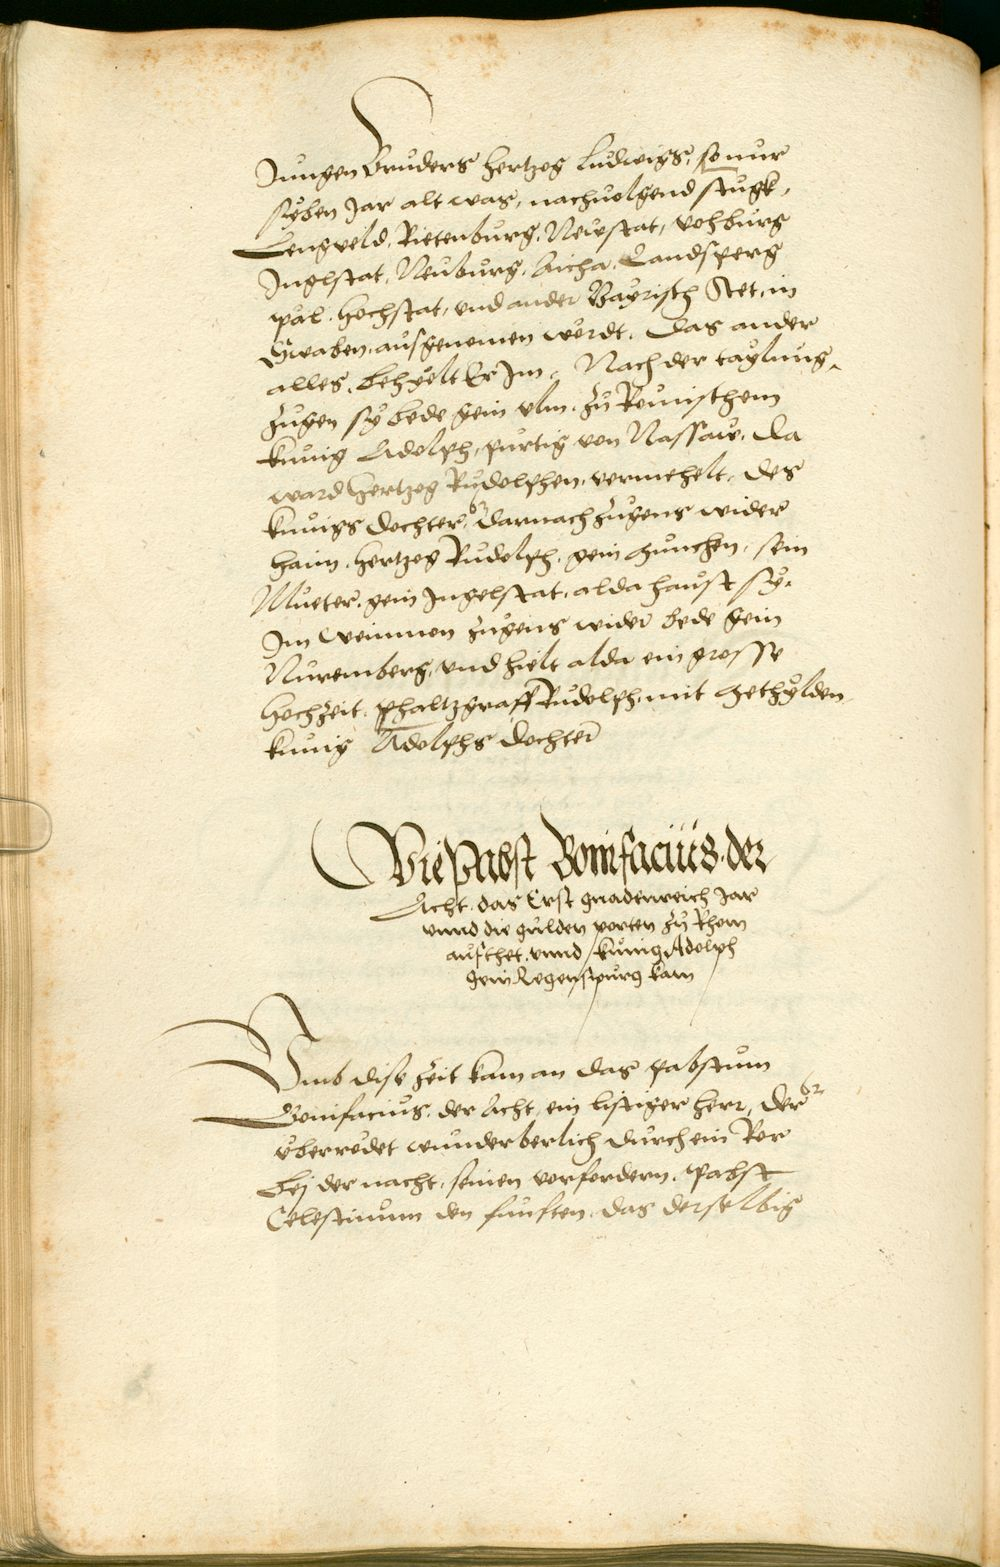 Jungen Bruders Hertzog Ludwigs, so nur
syben Jar alt was, nachuolgend stugk,
Lengveld, Rietenburg, Neustat, Vohburg
Inglstat, Neuburg, Aicha, Landsperg
Päl, Hochstat, vnd ander Bayrisch Stet, in
Swaben, ausgenomen wordt. Das ander
alles, behyelt Er Im. Nach der taylung,
zugen sy bede gein Vlm, zu Romischem
kunig Adolph, purtig von Nassaw, Da
ward Hertzog Rudolphen, vermehelt, des
kunigs dochter, Darnach zugens wider
haim, Hertzog Rudolph, gein Munchen, sein
Mueter, gein Ingelstat, alda haust sy,
Im weinmon zugens wider bede gein
Nuremberg, vnd hielt alda ein grosse
Hochzeit, Phaltzgraff Rudolph, mit Methylden
kunig Adolphs dochter
Wie Pabst Bonifacius der
Acht, das Erst gnadenreich Jar
vnnd die gulden porten zu Rhom
aufthet, vnnd kunig Adolph
gein Regenspurg kam
Vmb dise zeit kam an das pabstum
Bonifacius, der Acht, ein listiger herr, der
vberredet wunderberlich durch ein Ror
bej der nacht, seinen vorfordern, Pabst
Celestinum den funften, das derselbig